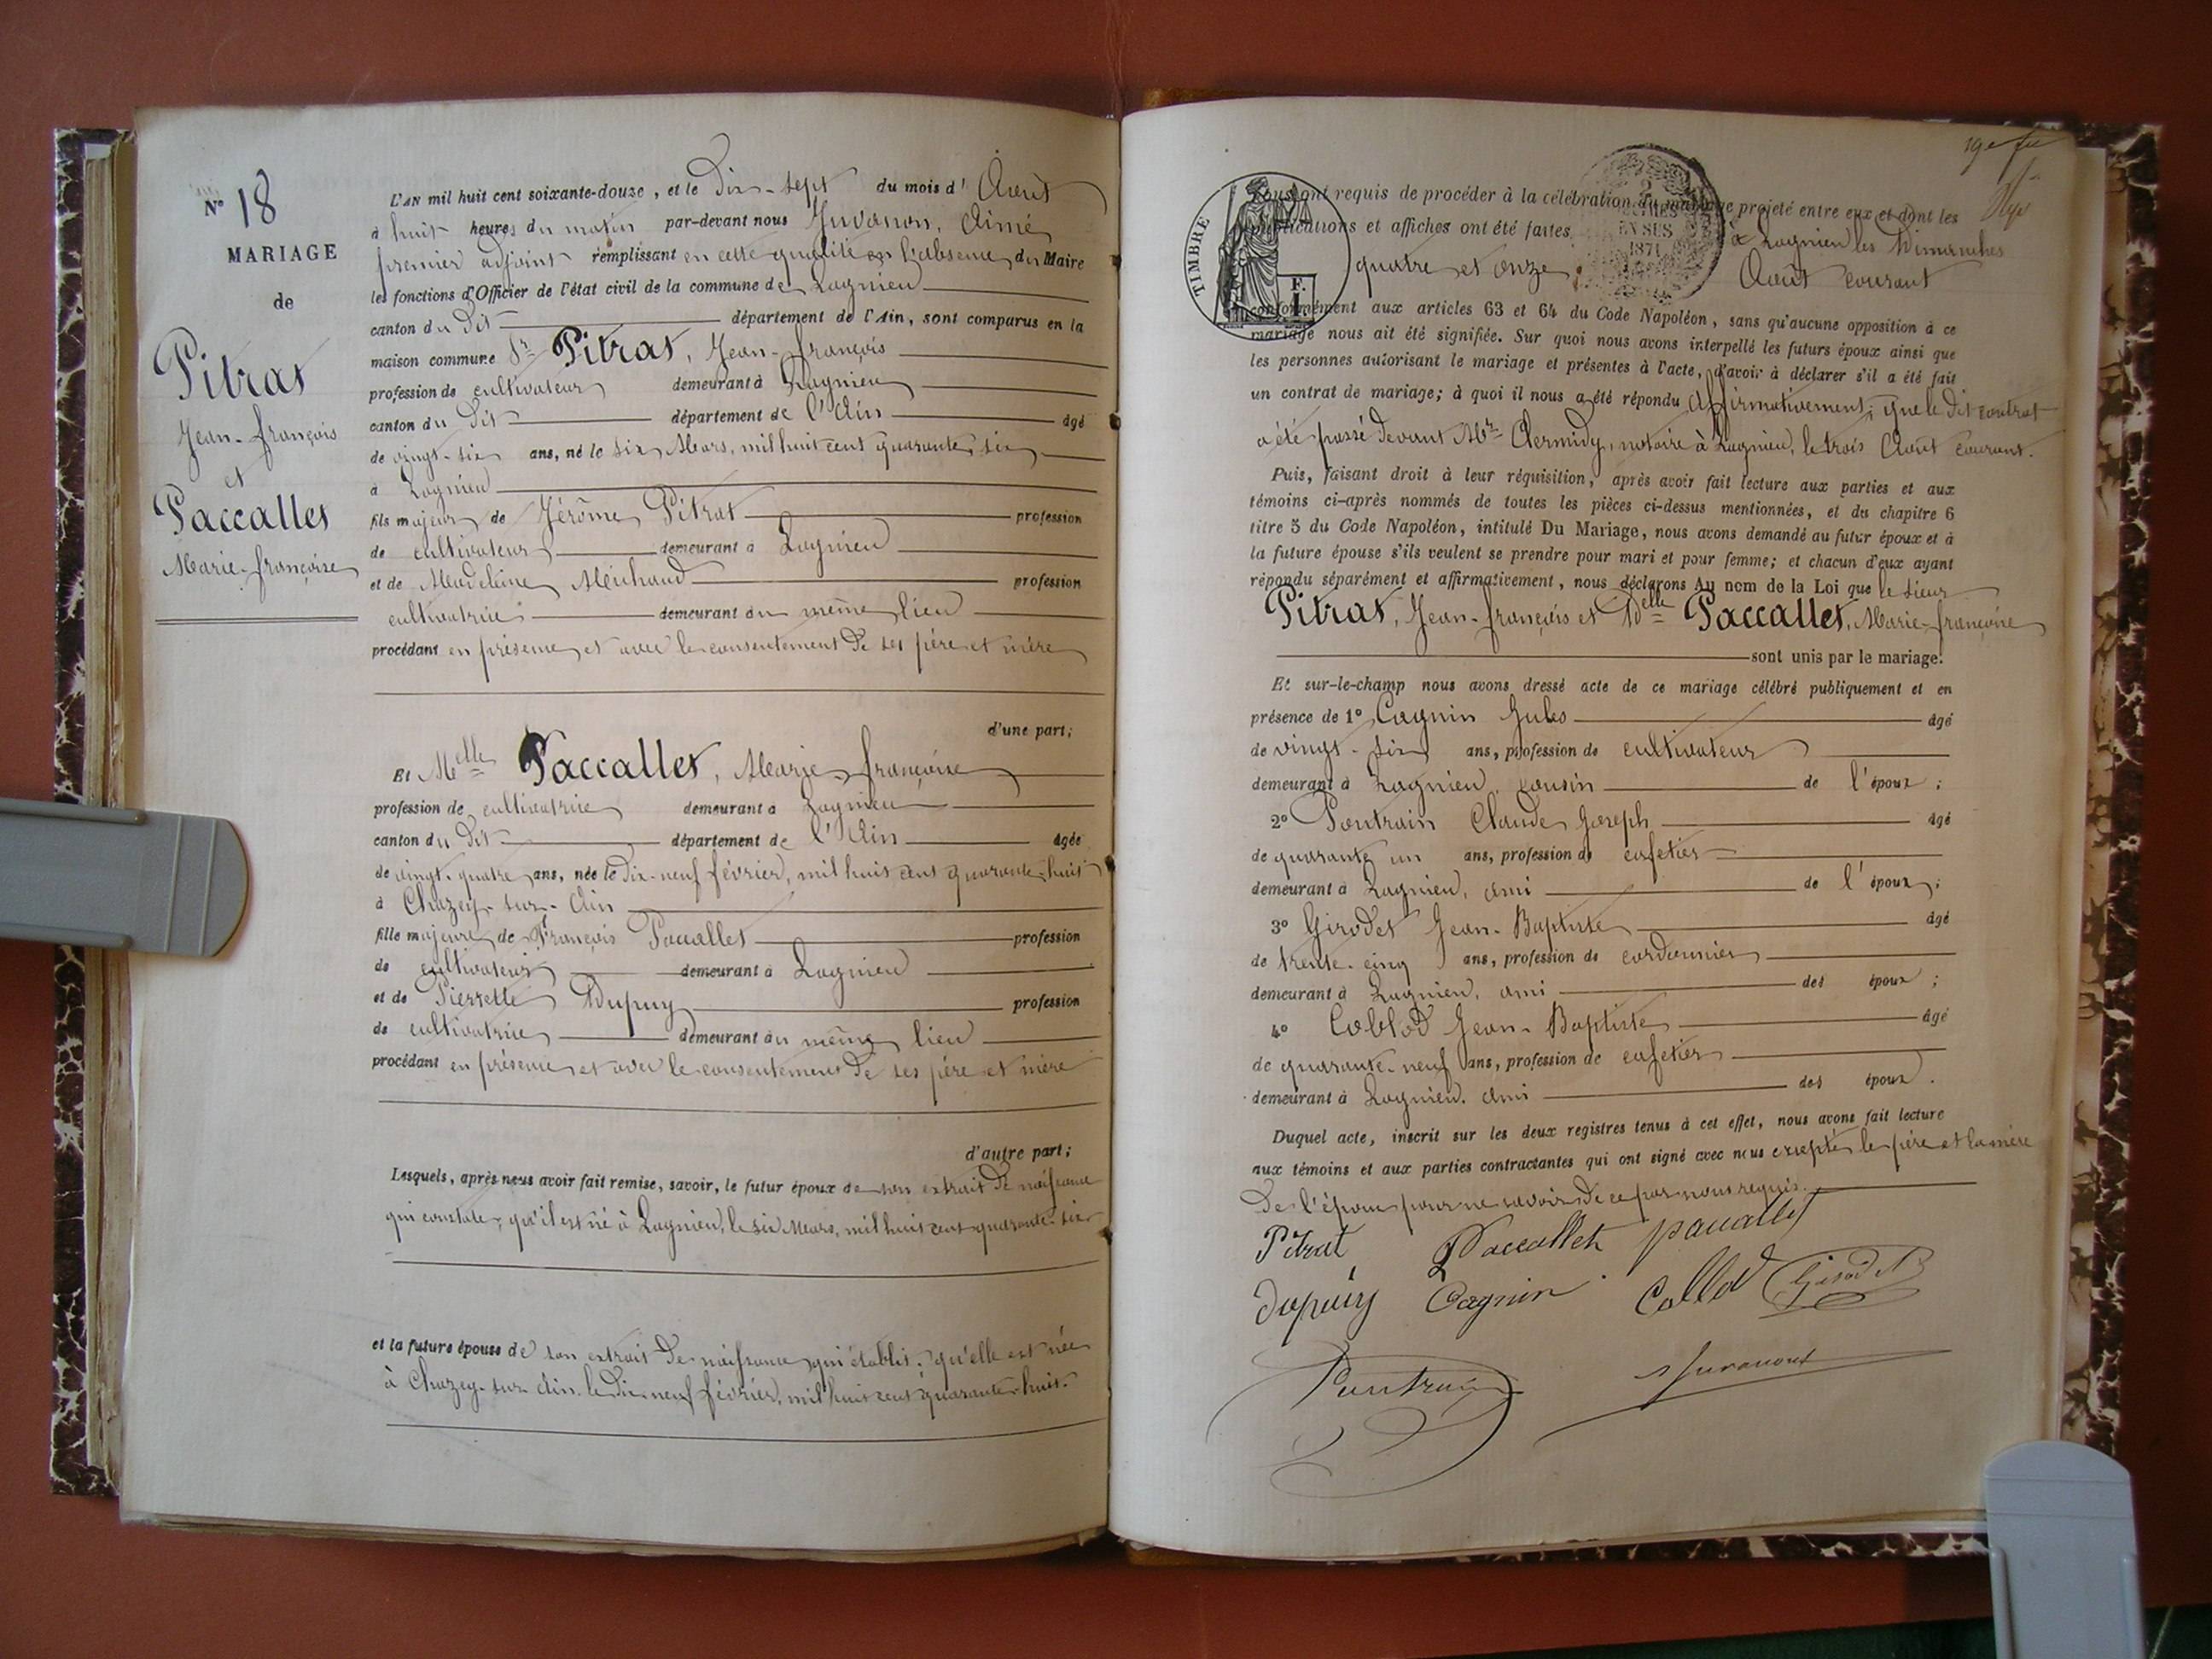 N° 18
MARIAGE
de
Pitrat
Jean-françois
et
Paccallet
Marie-françoise
L'AN mil huit cent soixante-douze, et le Dix-sept du mois d'Août
à huit heures du matin par-devant nous Juvanon, Aimé
premier adjoint remplissant en cette qualité en l'absence du Maire
les fonctions d'Officier de l'état civil de la commune de Lagnieu
canton du Dit département de l'Ain, sont comparus en la
maison commune Sr Pitrat, Jean-françois
profession de cultivateur demeurant à Lagnieu
canton du Dit département de l'Ain âgé
de vingt-six ans, né le six Mars, mil huit cent quarante six
à Lagnieu
fils majeur de Jérôme Pitrat profession
de cultivateur demeurant à Lagnieu
et de Madeleine Michaud profession
cultivatrice demeurant au même lieu
procédant en présence et avec le consentement de ses père et mère
d'une part;
Et Melle Paccallet, Marie-françoise
profession de cultivatrice demeurant à Lagnieu
canton du Dit département de l'Ain âgée
de vingt-quatre ans, née le Dix-neuf février, mil huit cent quarante-huit
à Chazey-sur-Ain
fille majeure de François Paccallet profession
de cultivateur demeurant à Lagnieu
et de Pierrette Dupuy profession
de cultivatrice demeurant au même lieu
procédant en présence et avec le consentement de ses père et mère
d'autre part;
Lesquels, après nous avoir fait remise, savoir, le futur époux de son extrait de naissance
qui constate, qu'il est né à Lagnieu, le six Mars, mil huit cent quarante-six
et la future épouse de son extrait de naissance qui établit, qu'elle est née
à Chazey-sur-Ain le Dix-neuf février, mil huit cent quarante-huit.
19e
TIMBRE
1 F.
EN SUS
1871
Nous ont requis de procéder à la célébration du mariage projeté entre eux et dont les
publications et affiches ont été faites, à Lagnieu les Dimanches
quatre et onze Août courant
conformément aux articles 63 et 64 du Code Napoléon, sans qu'aucune opposition à ce
mariage nous ait été signifiée. Sur quoi nous avons interpellé les futurs époux ainsi que
les personnes autorisant le mariage et présentes à l'acte, d'avoir à déclarer s'il a été fait
un contrat de mariage; à quoi il nous a été répondu Affirmativement; que le dit contrat
a été passé devant Me Clermidy, notaire à Lagnieu, le trois Août courant.
Puis, faisant droit à leur réquisition, après avoir fait lecture aux parties et aux
témoins ci-après nommés de toutes les pièces ci-dessus mentionnées, et du chapitre 6
titre 5 du Code Napoléon, intitulé Du Mariage, nous avons demandé au futur époux et à
la future épouse s'ils veulent se prendre pour mari et pour femme; et chacun d'eux ayant
répondu séparément et affirmativement, nous déclarons Au nom de la Loi que le sieur
Pitrat, Jean-françois et Delle Paccallet, Marie-françoise
sont unis par le mariage.
Et sur-le-champ nous avons dressé acte de ce mariage célébré publiquement et en
présence de 1° Cagnin Jules âgé
de vingt-six ans, profession de cultivateur
demeurant à Lagnieu, cousin de l'époux;
2° Pontrain Claude Joseph âgé
de quarante un ans, profession de cafetier
demeurant à Lagnieu, ami de l'époux;
3° Girodet Jean-Baptiste âgé
de trente-cinq ans, profession de cordonnier
demeurant à Lagnieu, ami des époux;
4° Collod Jean-Baptiste âgé
de quarante-neuf ans, profession de cafetier
demeurant à Lagnieu, ami des époux.
Duquel acte, inscrit sur les deux registres tenus à cet effet, nous avons fait lecture
aux témoins et aux parties contractantes qui ont signé avec nous excepté le père et la mère
De l'époux pour ne savoir de ce par nous requis.
Pitrat Paccallet paccallet
Dupuiy Cagnin Collod Girodet
Pontrain Juvanon